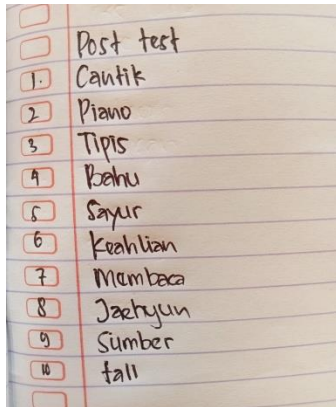 Post test
1. Cantik
2 Piano
3 Tipis
4 Bahu
5 Sayur
6 Keahlian
7 Membaca
8 Jaehyun
9 Sumber
10 tall